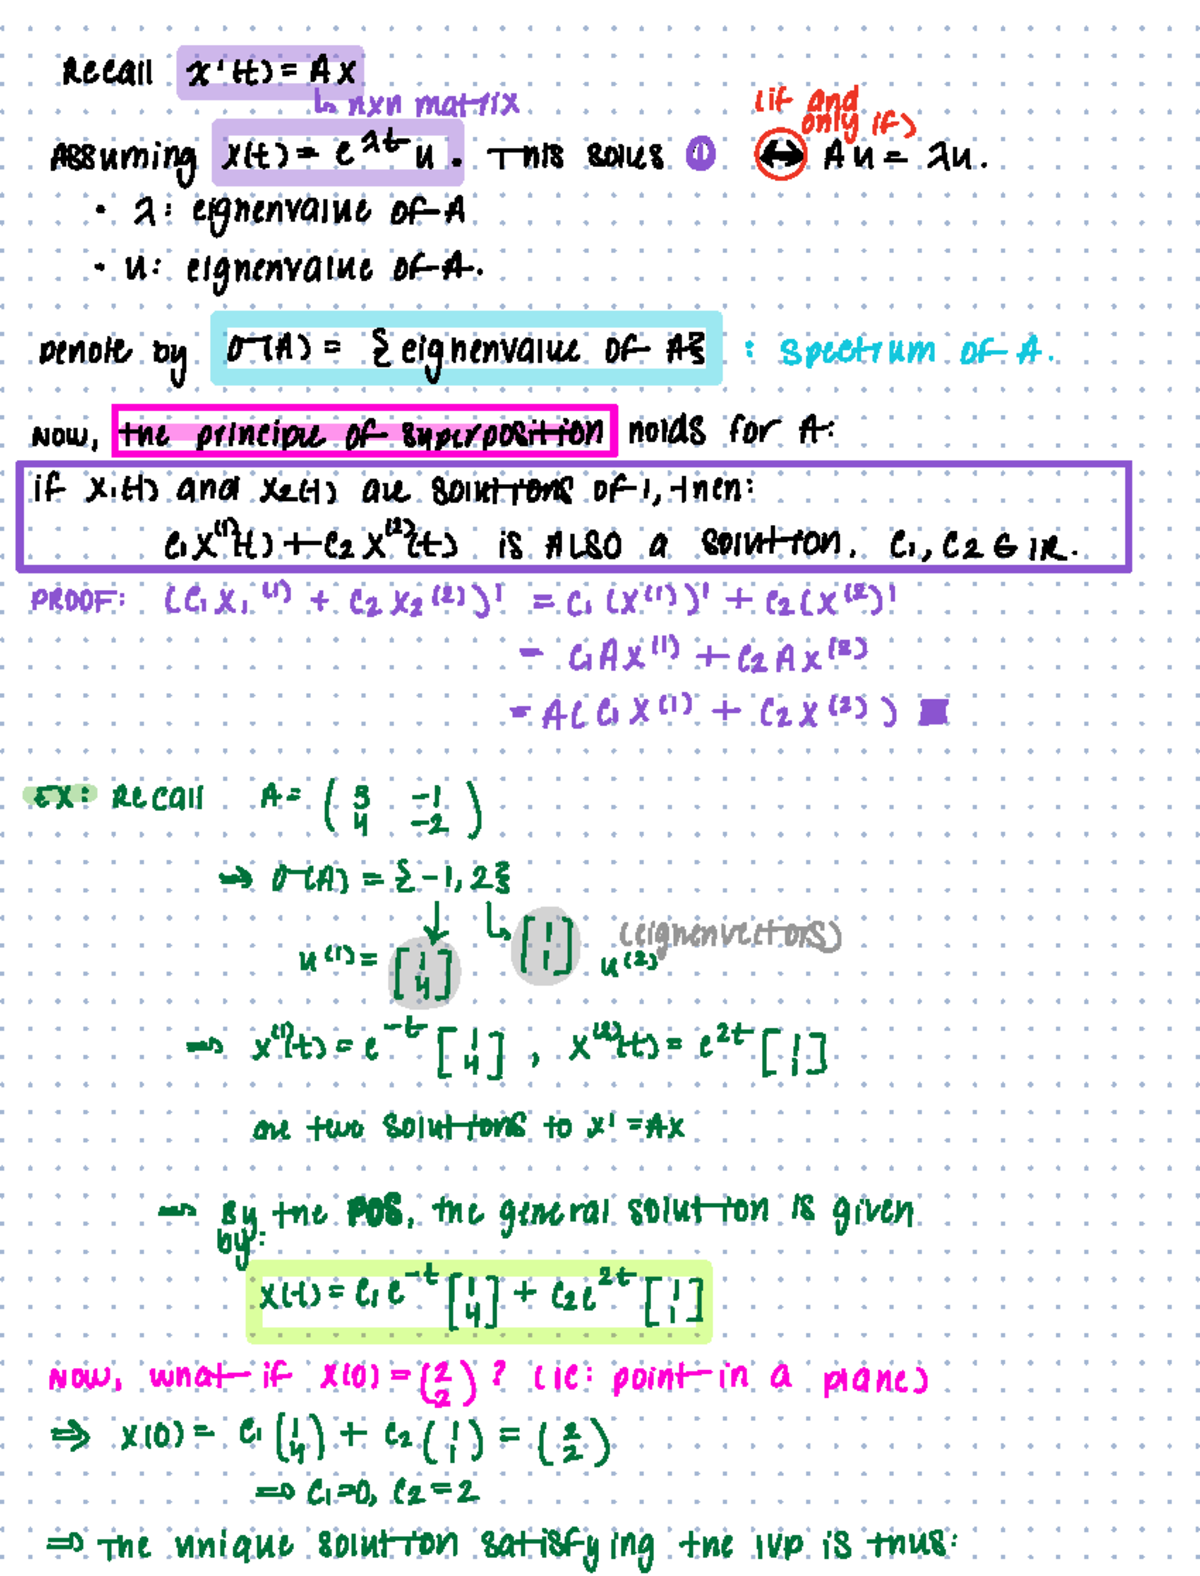 Recall x'(t) = Ax
↳ nxn matrix
Assuming x(t) = e^λt u. This solves ① ↔ (if and only if) Au = λu.
• λ: eignenvalue of A
• u: eignenvalue of A.
Denote by σ(A) = {eignenvalue of A} : spectrum of A.
Now, the principle of superposition holds for A:
if x₁(t) and x₂(t) are solutions of 1, then:
c₁x⁽¹⁾(t) + c₂x⁽²⁾(t) is ALSO a solution. c₁, c₂ ∈ ℝ.
PROOF: (c₁x₁⁽¹⁾ + c₂x₂⁽²⁾)' = c₁(x⁽¹⁾)' + c₂(x⁽²⁾)'
= c₁Ax⁽¹⁾ + c₂Ax⁽²⁾
= A(c₁x⁽¹⁾ + c₂x⁽²⁾) ■
EX: Recall A = (3 -1
4 -2)
⇒ σ(A) = {-1, 2}
↓ ↳ [1 1] (eignenvectors)
u⁽¹⁾ = [1 4] u⁽²⁾
⇒ x⁽¹⁾(t) = e^-t [1 4], x⁽²⁾(t) = e^2t [1 1]
are two solutions to x' = Ax
⇒ By the POS, the general solution is given
by:
x(t) = c₁e^-t [1 4] + c₂e^2t [1 1]
Now, what if x(0) = (2 2)? (ie: point in a plane)
⇒ x(0) = c₁(1 4) + c₂(1 1) = (2 2)
⇒ c₁=0, c₂=2
⇒ The unique solution satisfying the IVP is thus: